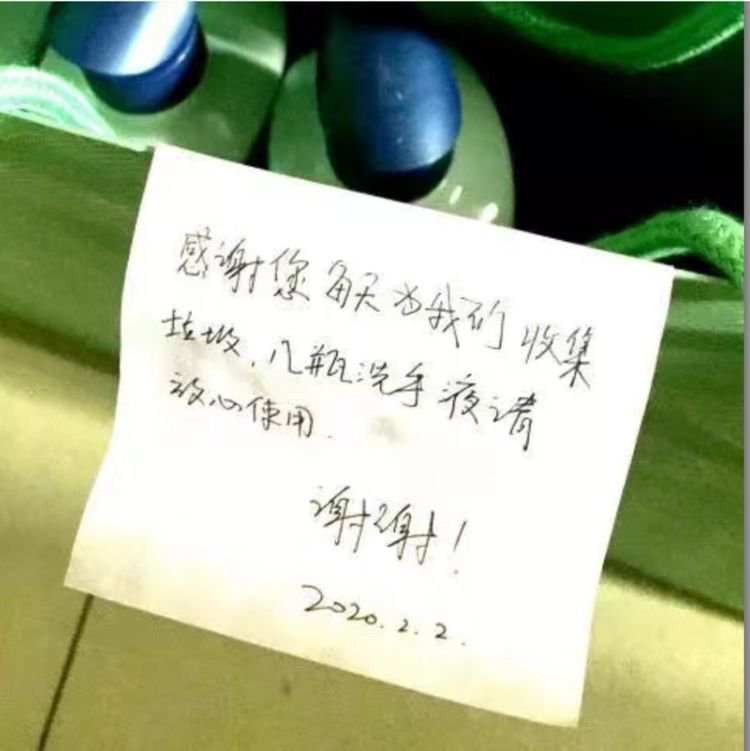 感谢您每天为我们收集
垃圾，几瓶洗手液请
放心使用.
谢谢！
2020.2.2.